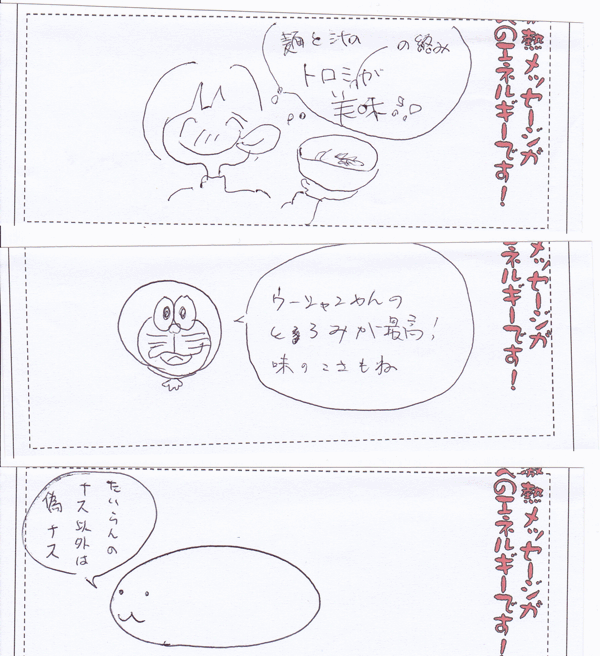 熱メッセージが
へのエネルギーです！
麺と汁の の絡み
トロミが
美味
メッセージが
エネルギーです！
ウーシャンめんの
とろみが最高！
味のこさもね
熱メッセージが
へのエネルギーです！
たいらんの
ナス以外は
偽ナス